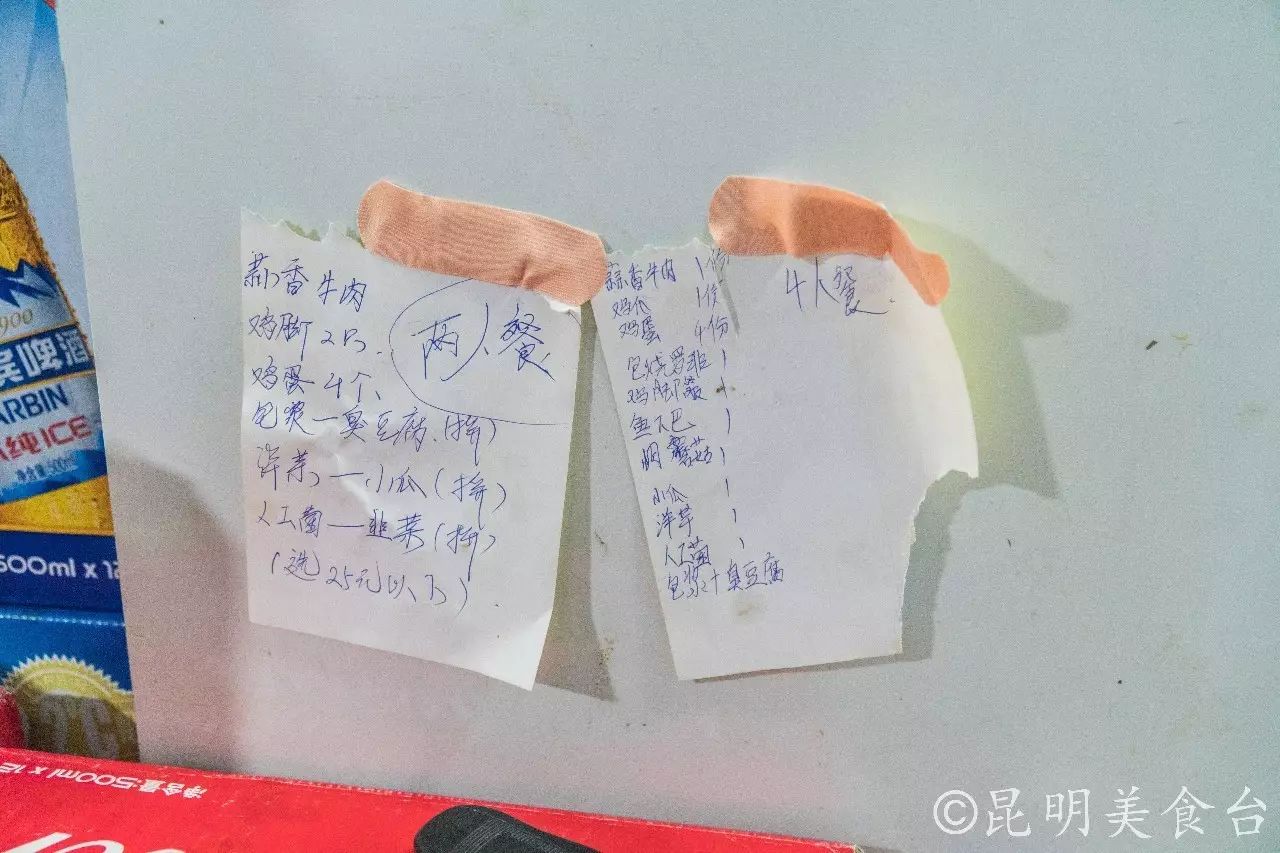 蒜香牛肉
鸡脚2只.
鸡蛋4个
包浆一臭豆腐.(拼)
洋芋一小瓜(拼)
人工菌一韭菜(拼)
(选25元以下)
两人餐
蒜香牛肉 1份
鸡爪 1份
鸡蛋 4份
包烧罗非 1
鸡脚筋 1
鱼下巴 1
蘑菇 1
小瓜 1
洋芋 1
人工菌 1
包浆+臭豆腐
4人餐.
900
宾啤酒
ARBIN
纯ICE
净含量:500ml
500ml x 12
净含量:500ml x 12
©昆明美食台